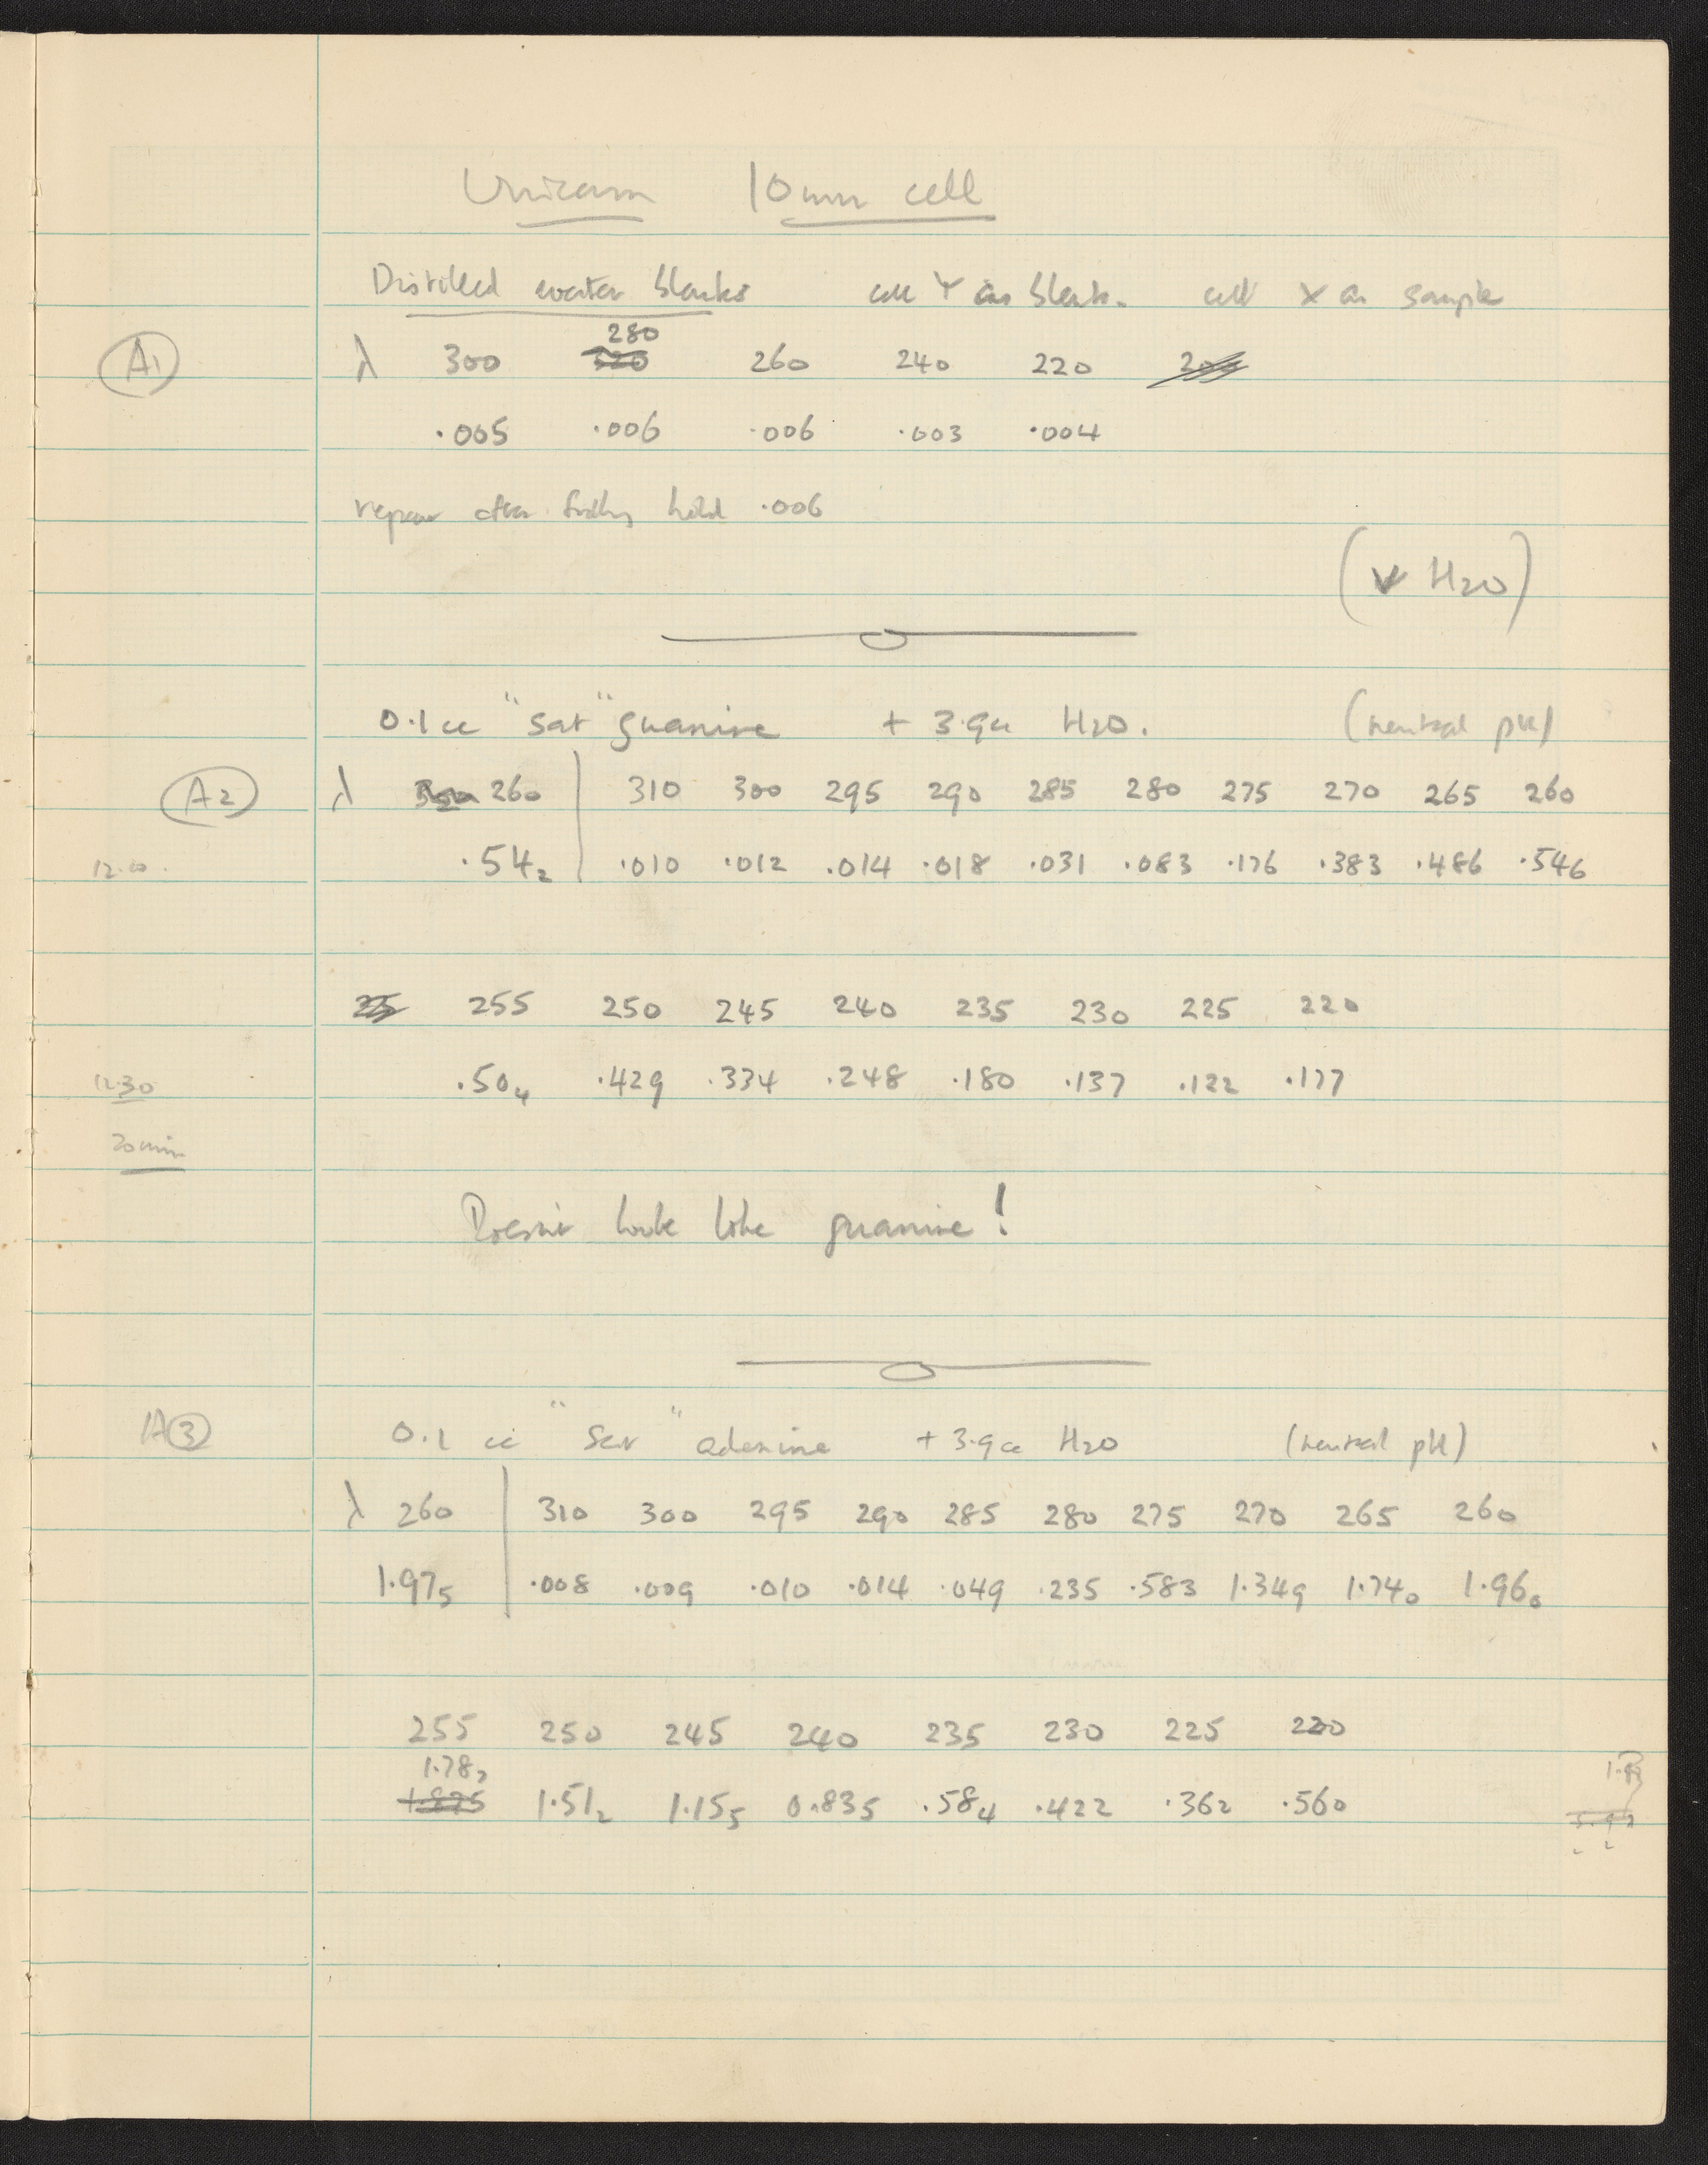 Unicam 10mm cell
Distilled water blanks cell Y as blank. cell X as sample
280
A1 λ 300 320 260 240 220
.005 .006 .006 .003 .004
repeat after .006
(v H2O)
0.1 cc "sat" guanine + 3.9cc H2O. (neutral pH)
A2 λ 260 310 300 295 290 285 280 275 270 265 260
12.0 .542 .010 .012 .014 .018 .031 .083 .176 .383 .486 .546
255 250 245 240 235 230 225 220
12.30 .504 .429 .334 .248 .180 .137 .122 .177
Doesn't look like guanine!
A3 0.1 cc "Sat" adenine + 3.9 cc H2O (neutral pH)
λ 260 310 300 295 290 285 280 275 270 265 260
1.975 .008 .009 .010 .014 .049 .235 .583 1.349 1.740 1.960
255 250 245 240 235 230 225 220
1.512 1.155 0.835 .584 .422 .362 .560